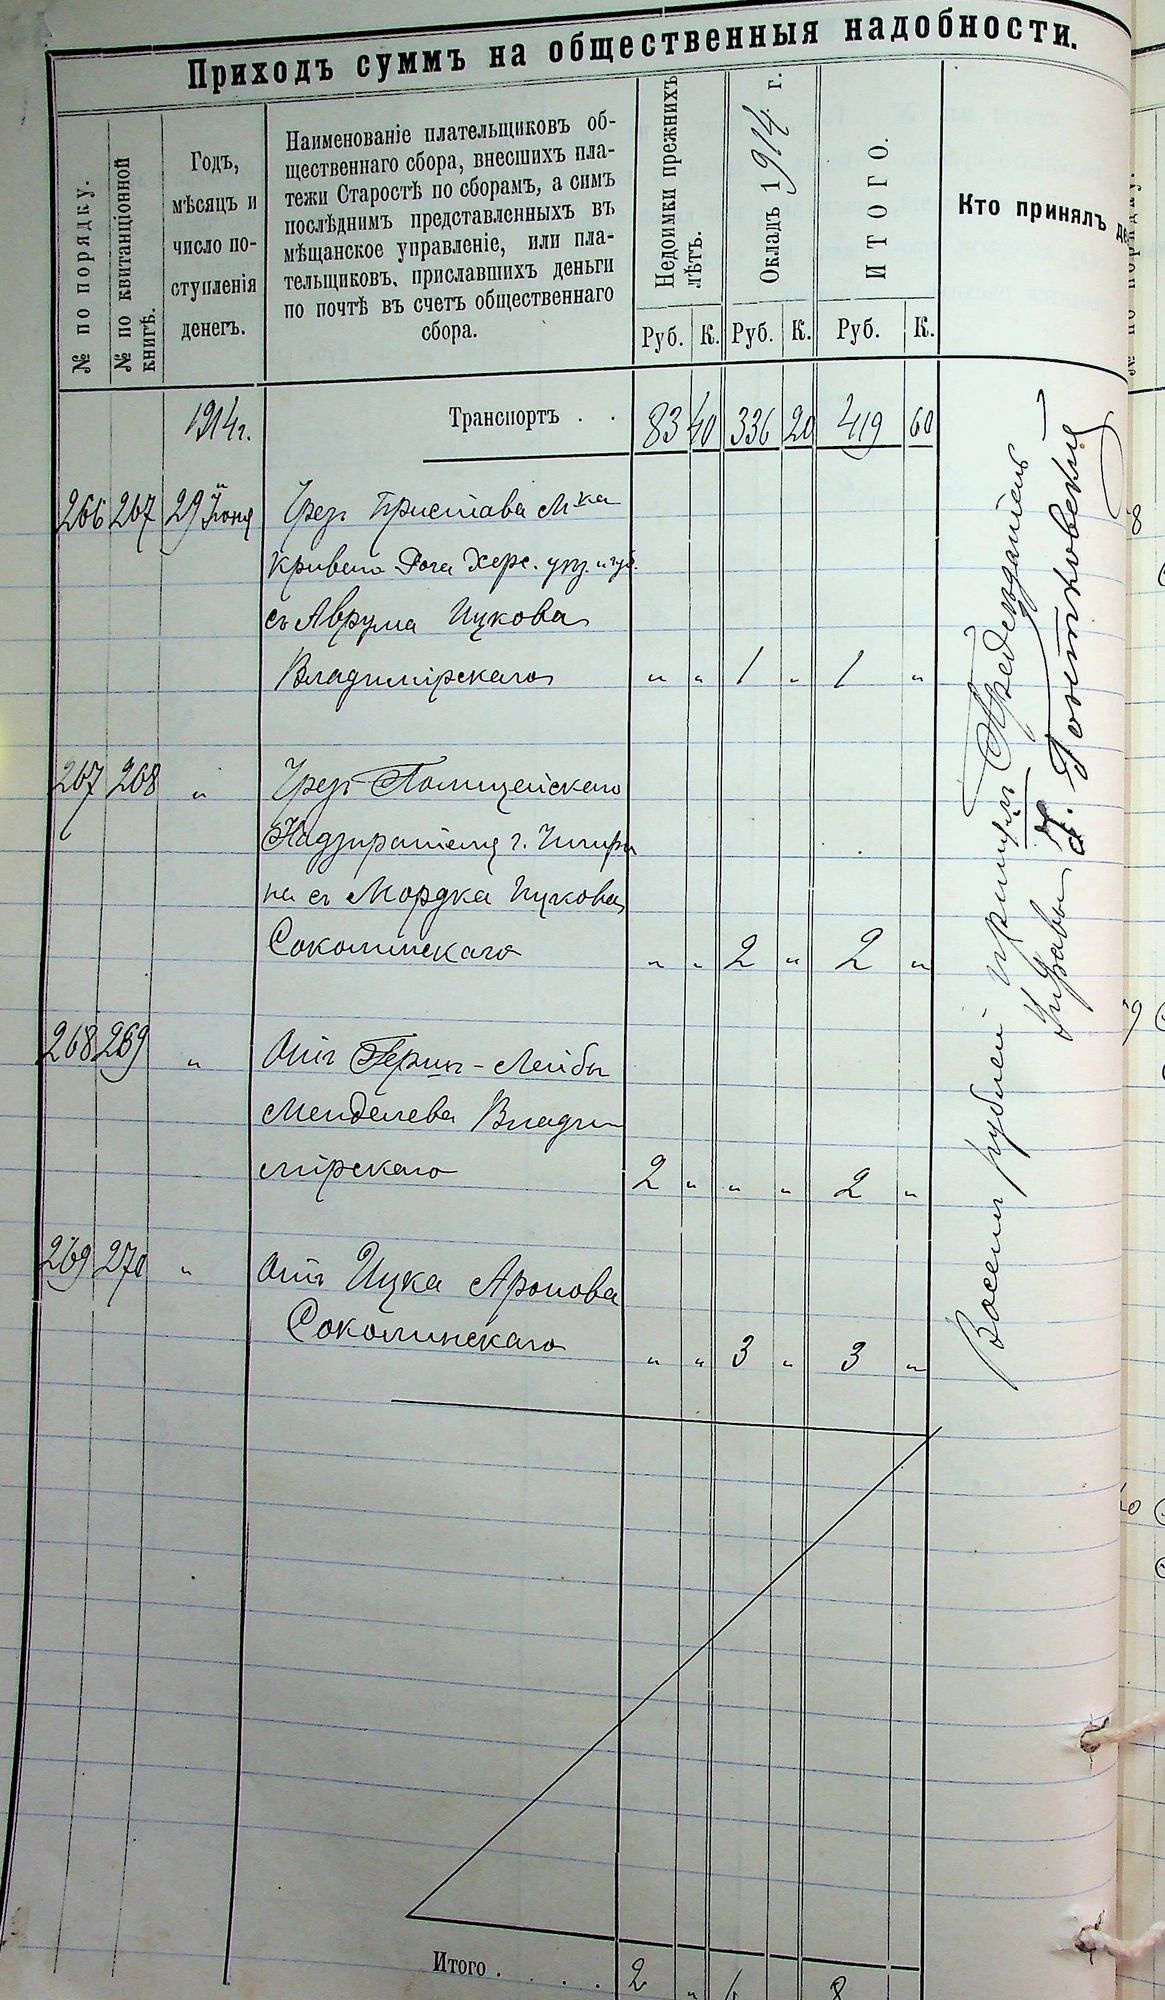 Приходъ суммъ на общественныя надобности.
№ по порядку.
№ по квитанціонной
книгѣ.
Годъ,
мѣсяцъ и
число по-
ступленія
денегъ.
Наименованіе плательщиковъ об-
щественнаго сбора, внесшихъ пла-
тежи Старостѣ по сборамъ, а симъ
послѣднимъ представленныхъ въ
мѣщанское управленіе, или пла-
тельщиковъ, приславшихъ деньги
по почтѣ въ счетъ общественнаго
сбора.
Недоимки прежнихъ
лѣтъ.
Окладъ 1914 г.
ИТОГО.
Кто принялъ де
Руб. К. Руб. К. Руб. К.
1914 г. Транспортъ . . 83 40 336 20 419 60
266 267 29 Іюня Чрез Пристава М-ка
Кривого Рога Херс. уез. и губ.
съ Аврума Ицкова
Владимірскаго " " 1 " 1 "
267 268 " Чрезъ Полицейскаго
Надзирателя г. Чигири
на съ Мордка Ицкова
Соколинскаго " " 2 " 2 "
268 269 " Отъ Герш-Лейбы
Менделева Влади
мірскаго 2 " " " 2 "
269 270 " Отъ Ицка Аронова
Соколинскаго " " 3 " 3 "
Восемь рублей принялъ Председатель
Управы
Итого . . . . 2 " 6 8